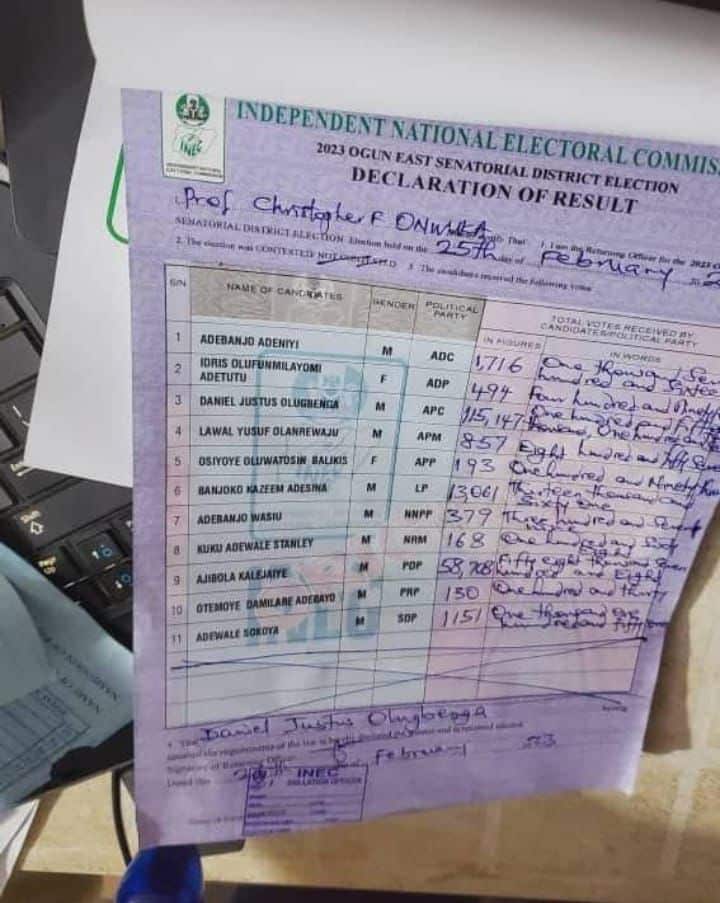 INDEPENDENT NATIONAL ELECTORAL COMMISS
2023 OGUN EAST SENATORIAL DISTRICT ELECTION
DECLARATION OF RESULT
INEC
I, Prof Christopher F ONWUKA That: 1. I am the Returning Officer for the 2023
SENATORIAL DISTRICT ELECTION Election held on the 25th day of February 20
2. The election was CONTESTED NOT CONTESTED 3. The candidates received the following votes
S/N NAME OF CANDIDATES GENDER POLITICAL PARTY TOTAL VOTES RECEIVED BY CANDIDATES/POLITICAL PARTY
IN FIGURES IN WORDS
1 ADEBANJO ADENIYI M ADC 1,716 One thousand Seven hundred and Sixteen
2 IDRIS OLUFUNMILAYOMI ADETUTU F ADP 494 Four hundred and Ninety
3 DANIEL JUSTUS OLUGBENGA M APC 115,147 One hundred and fifteen thousand, One hundred and
4 LAWAL YUSUF OLANREWAJU M APM 857 Eight hundred and fifty Seven
5 OSIYOYE OLUWATOSIN BALIKIS F APP 193 One hundred and Ninety three
6 BANJOKO KAZEEM ADESINA M LP 13061 Thirteen thousand and Sixty One
7 ADEBANJO WASIU M NNPP 379 Three hundred and Seventy
8 KUKU ADEWALE STANLEY M NRM 168 One hundred and Sixty Eight
9 AJIBOLA KALEJAIYE M PDP 58,708 Fifty eight thousand Seven hundred and Eight
10 OTEMOYE DAMILARE ADEBAYO M PRP 130 One hundred and thirty
11 ADEWALE SOKOYA M SDP 1151 One thousand one hundred and fifty one
4. That Daniel Justus Olugbenga
satisfied the requirements of the law is hereby declared the winner and is returned elected.
Signature of Returning Officer
Dated this February 23
INEC
COLLATION OFFICER